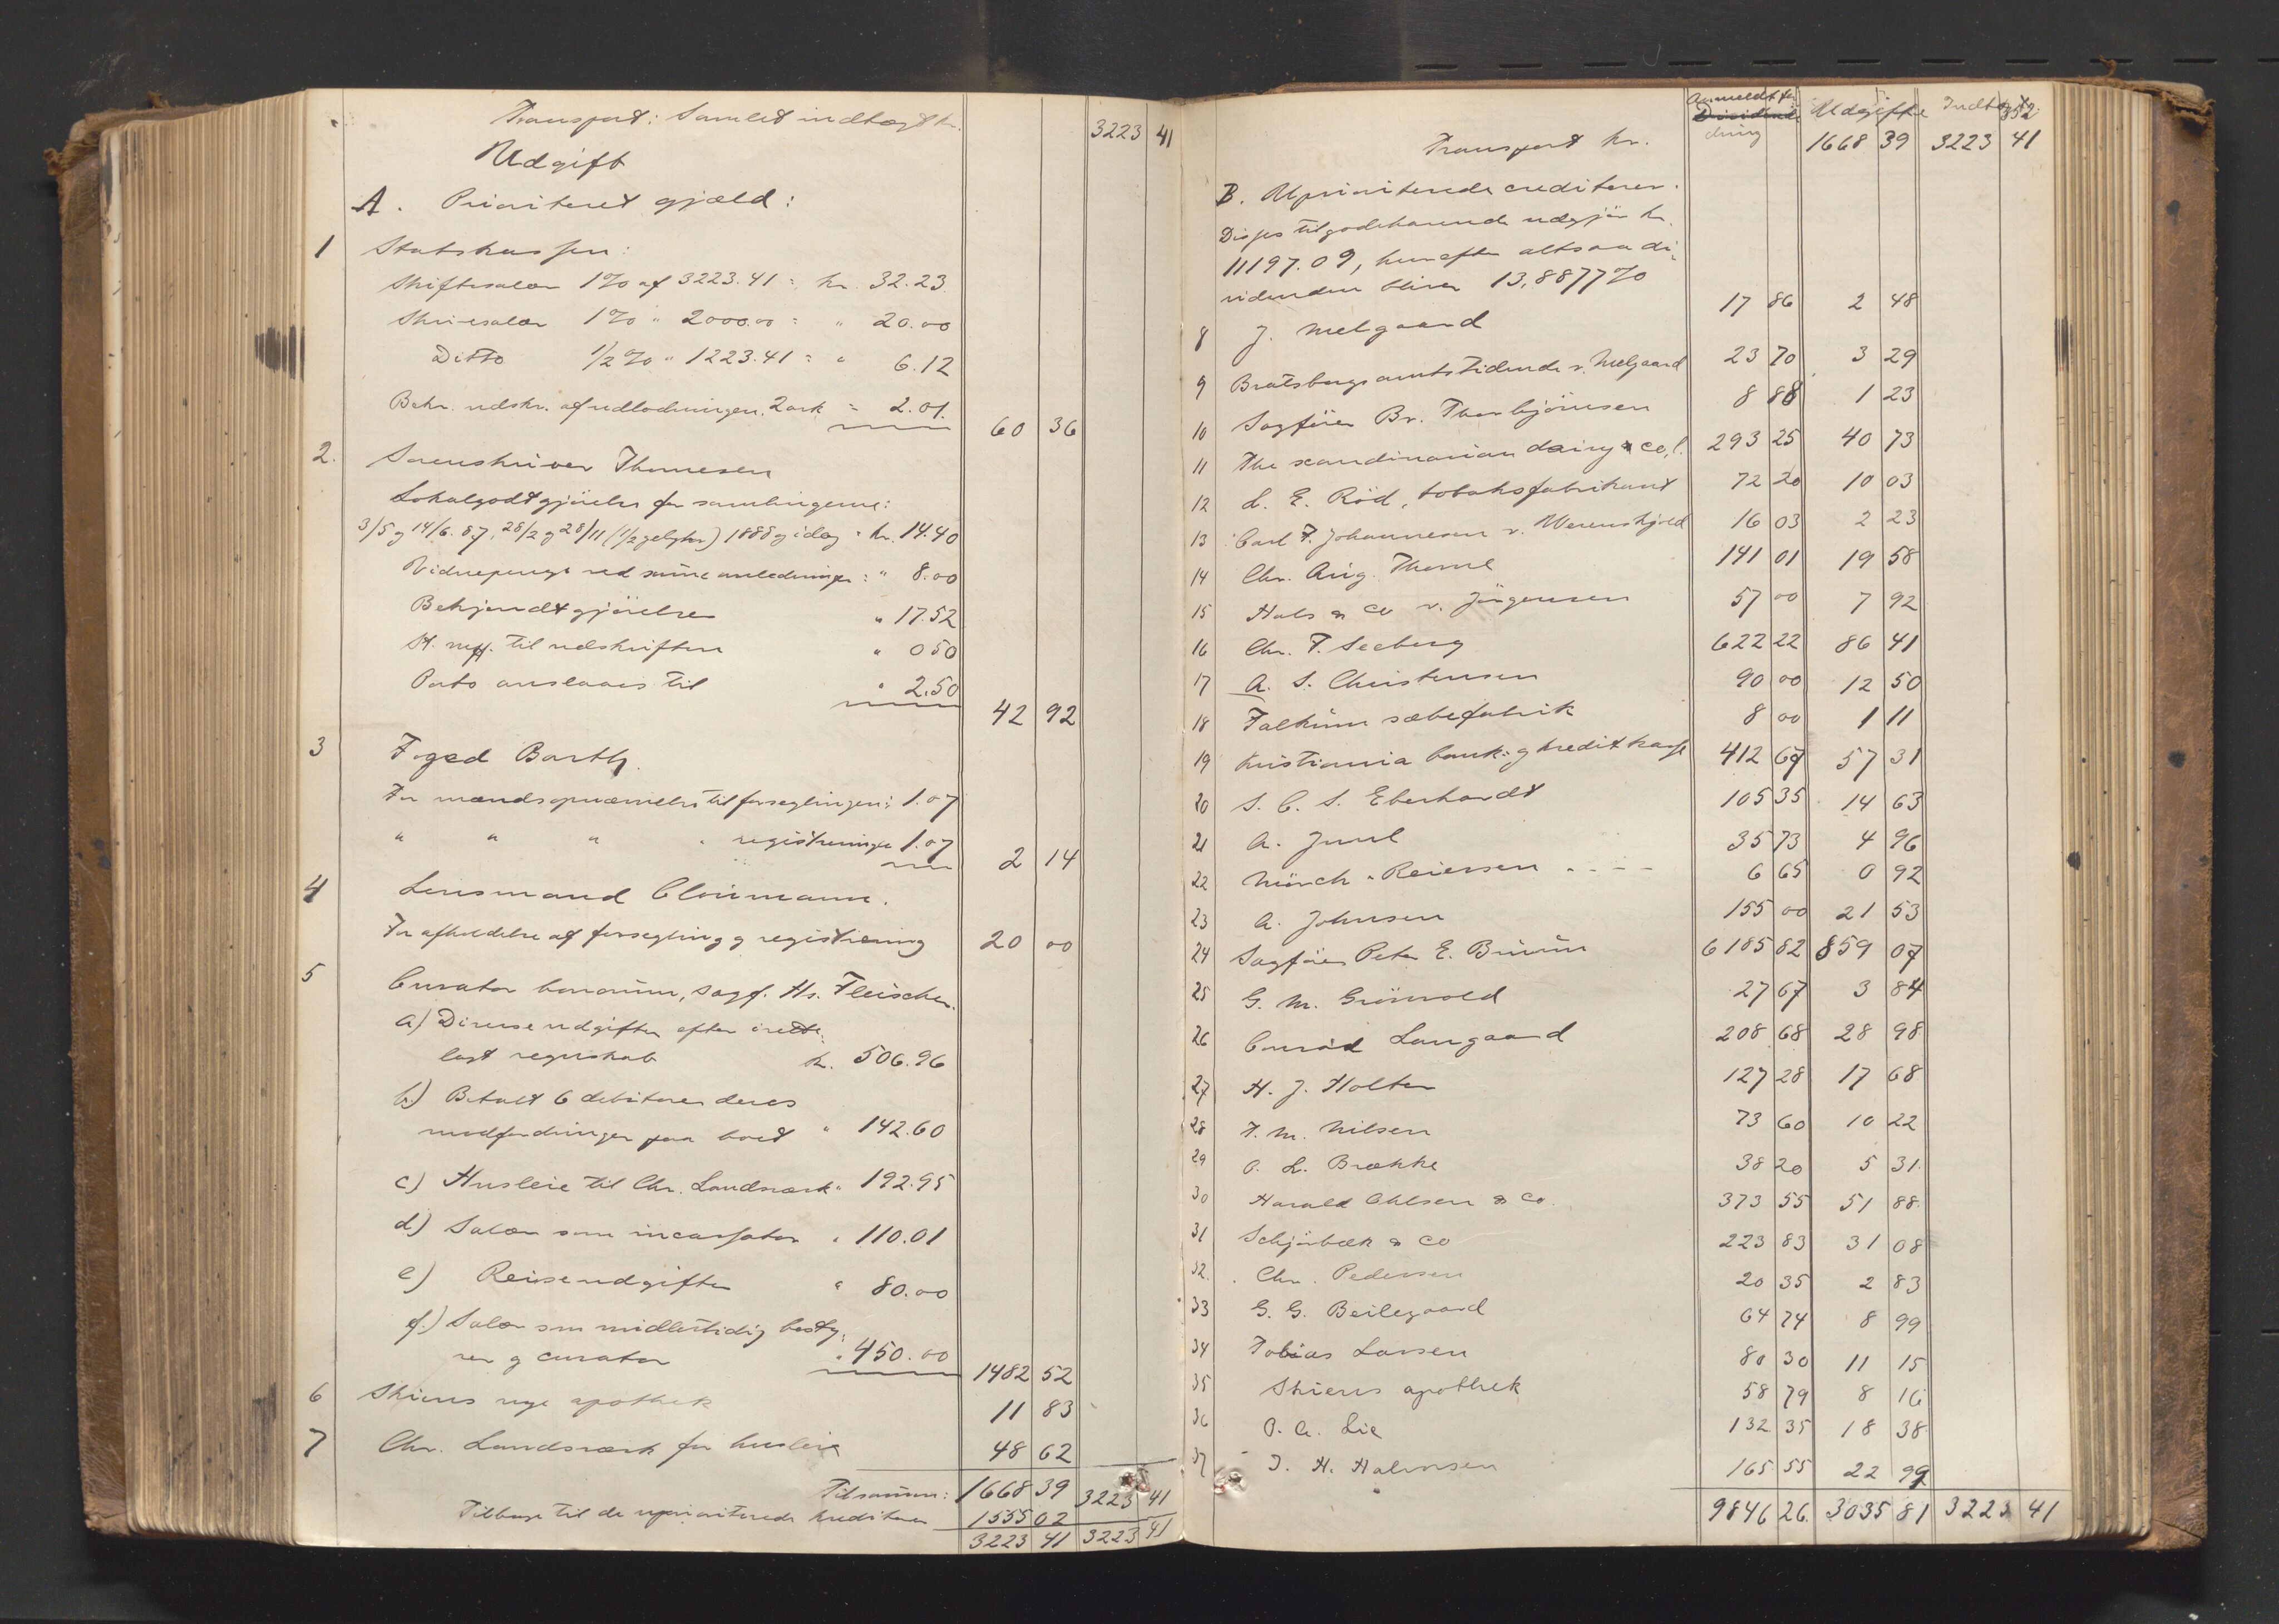 Transport: Samlet indtægt kr. 3223 41
Udgift
A. Prioriteret gjæld:
1 Statskassen:
Skiftesalær 1% af 3223.41 = kr. 32.23
Skrivesalær 1% " 2000.00 = " 20.00
Ditto 1/2% " 1223.41 = " 6.12
Bekr. udskr. af udlodningen, 2 ark = 2.01. 60 36
2. Sorenskriver Thomesen
Lokalgodtgjörelse for samlingerne:
3/5 og 14/6. 87, 28/2 og 28/11 (1/2 gebyhr) 1888 og idag = kr. 14.40
Vidnepenge ved samme anledninger: " 8.00
Bekjendtgjörelser " 17.52
St. mpp. til udskriften " 0 50
Porto anslaaes til " 2.50 42 92
3 Foged Barth.
For mandsopnævnelse til forseglingen: 1.07
" " " " registreringen 1.07 2 14
4 Lensmand Cloumann.
For afholdelse af forsegling og registrering 20 00
5 Curator bonorum, sagf. Hs. Fleischer.
a) Diverse udgifter efter irette-
lagt regnskab kr. 506.96
b) Betalt 6 debitorer deres
modfordringer paa boet " 142.60
c) Husleie til Chr. Landsværk " 192.95
d) Salær som incassator " 110.01
e) Reiseudgifter " 80.00
f.) Salær som midlertidig besty-
rer og curator " 450.00 1482 52
6 Skiens nye apothek 11 83
7 Chr. Landsværk for husleie 48 62
Tilsammen: 1668 39 3223 41
Tilbage til de uprioriterede kreditorer 1555 02
3223 41 3223 41
352.
Anmeldt for
Dividende Udgifter Indtægter
dring
Transport kr. 1668 39 3223 41
B. Uprioriterede creditorer.
Disses tilgodehavende udgjör kr.
11197.09, hvorefter altsaa di-
videnden bliver 13,8877%
8 J. Melgaard 17 86 2 48
9 Bratsbergs amtstidende v. Melgaard 23 70 3 29
10 Sagförer Br. Thorbjörnsen 8 88 1 23
11 The scandinavian dairy & co, l. 293 25 40 73
12 L. E. Röd, tobaksfabrikant 72 20 10 03
13 Carl F. Johannesen v. Werenskjold 16 03 2 23
14 Chr. Aug. Thorne 141 01 19 58
15 Hals & Co v. Jörgensen 57 00 7 92
16 Chr. F. Seeberg 622 22 86 41
17 A. S. Christensen 90 00 12 50
18 Falkum sæbefabrik 8 00 1 11
19 Kristiania bank- og kreditkasse 412 67 57 31
20 S. C. S. Eberhardt 105 35 14 63
21 A. Juul 35 73 4 96
22 Mörch & Reiersen 6 65 0 92
23 A. Johnsen 155 00 21 53
24 Sagförer Peter E. Bruun 6185 82 859 07
25 G. M. Grönvold 27 67 3 84
26 Conrad Langaard 208 68 28 98
27 H. J. Holter 127 28 17 68
28 F. M. Nilsen 73 60 10 22
29 O. L. Brække 38 20 5 31
30 Harald Ohlsen & Co. 373 55 51 88
31 Schjörbæk & Co 223 83 31 08
32. Chr. Pedersen 20 35 2 83
33 G. G. Beilegaard 64 74 8 99
34 Tobias Larsen 80 30 11 15
35 Skiens apothek 58 79 8 16
36 O. A. Lie 132 35 18 38
37 J. H. Halvorsen 165 55 22 99
9846 26. 3035 81 3223 41